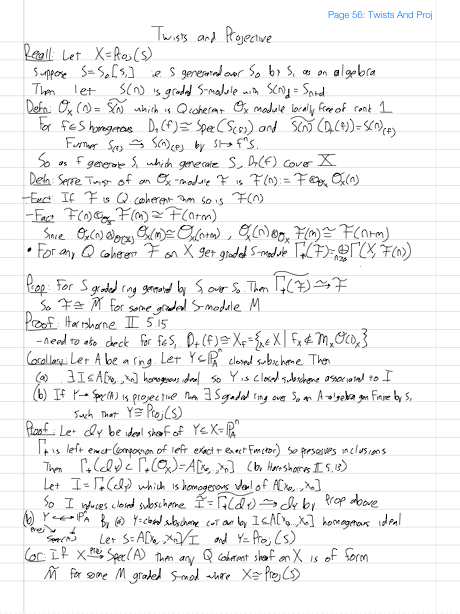 Page 56: Twists And Proj
Twists and Projective
Recall: Let X=Proj(S)
Suppose S=S₀[S₁] i.e. S generated over S₀ by S₁ as an algebra
Then let S(n) is graded S-module with S(n)_d = S_{n+d}
Defn: O_X(n) = S̃(n) which is Q coherent O_X module locally free of rank 1
For f∈S homogenous D₊(f)≅Spec(S_(f)) and S̃(n)(D₊(f))=S(n)_(f)
Further S_(f) ⥲ S(n)_(f) by s↦fⁿs
So as f generate S₁ which generate S, D₊(f) cover X
Defn: Serre Twist of an O_X-module F is F(n):= F⊗_{O_X} O_X(n)
-Fact: If F is Q. coherent then so is F(n)
-Fact F(n)⊗_{O_X} F(m) ≅ F(n+m)
Since O_X(n)⊗_{O_X} O_X(m)≅O_X(n+m), O_X(n)⊗_{O_X} F(m) ≅ F(n+m)
• For any Q coherent F on X get graded S-module Γ₊(F)=⊕_{n≥0} Γ(X, F(n))
Prop: For S graded ring generated by S₁ over S₀. Then Γ̃₊(F) ⥲ F
So F ≅ M̃ for some graded S-module M
Proof: Hartshorne II 5.15
-need to also check for f∈S₁ D₊(f)≅X_f={x∈X | f_x ∉ m_x O(1)_x}
Corollary: Let A be a ring. Let Y⊆Pⁿ_A closed subscheme Then
(a) ∃ I⊆A[x₀,..,x_n] homogenous ideal so Y is closed subscheme associated to I
(b) If Y→Spec(A) is projective then ∃ S graded ring over S₀ an A-algebra gen finite by S₁
such that Y≅Proj(S)
Proof: Let 𝓘_Y be ideal sheaf of Y⊆X=Pⁿ_A
Γ₊ is left exact (composition of left exact + exact functor) so preserves inclusions
Then Γ₊(𝓘_Y)⊂Γ₊(O_X)=A[x₀,..,x_n] (by Hartshorne II 5.13)
Let I=Γ₊(𝓘_Y) which is homogenous ideal of A[x₀,..,x_n]
So I induces closed subscheme Ĩ=Γ̃₊(𝓘_Y) ⥲ 𝓘_Y by Prop above
(b) Y ↪ Pⁿ_A By (a) Y=closed subscheme cut out by I⊆A[x₀,..,x_n] homogenous ideal
proj Spec(A) Let S=A[x₀,..,x_n]/I and Y=Proj(S)
Cor: If X →^{proj} Spec(A) then any Q coherent sheaf on X is of form
M̃ for some M graded S-mod where X≅Proj(S)